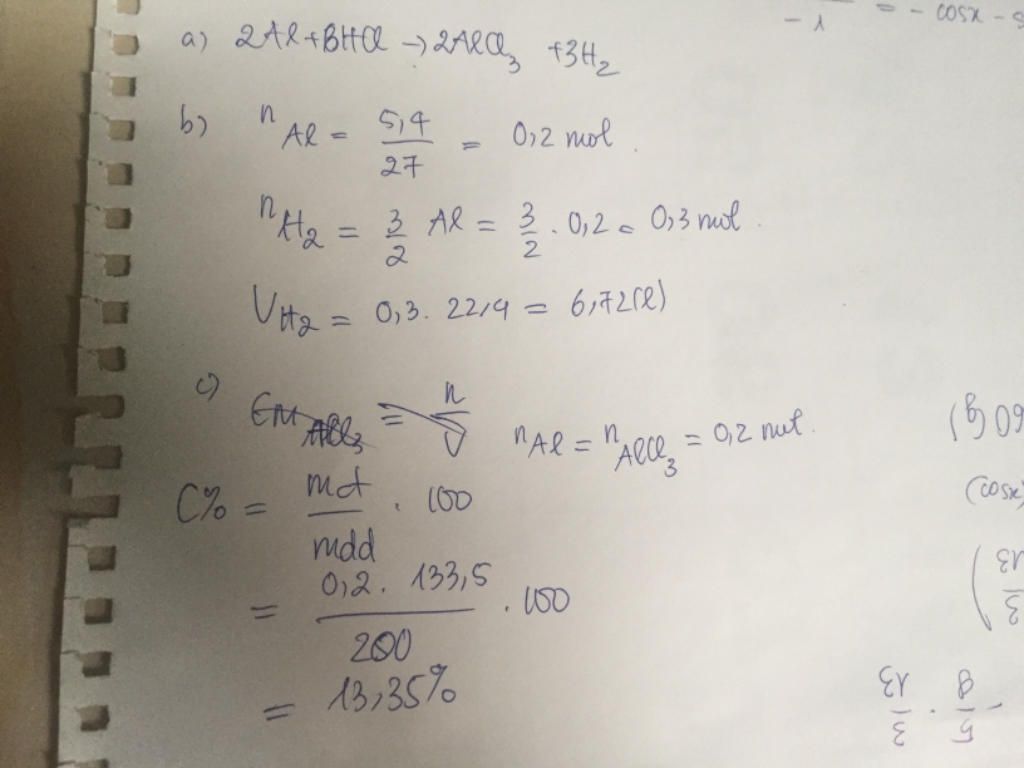 a) 2Al + 6HCl → 2AlCl3 + 3H2
b) nAl = 5,4/27 = 0,2 mol.
nH2 = 3/2 Al = 3/2 . 0,2 = 0,3 mol.
VH2 = 0,3 . 22,4 = 6,72 (l)
c) CM AlCl3 = n/V
nAl = nAlCl3 = 0,2 mol.
C% = mct/mdd . 100
= 0,2 . 133,5/200 . 100
= 13,35%
-1
= - cosx -
60(g)
(cosx